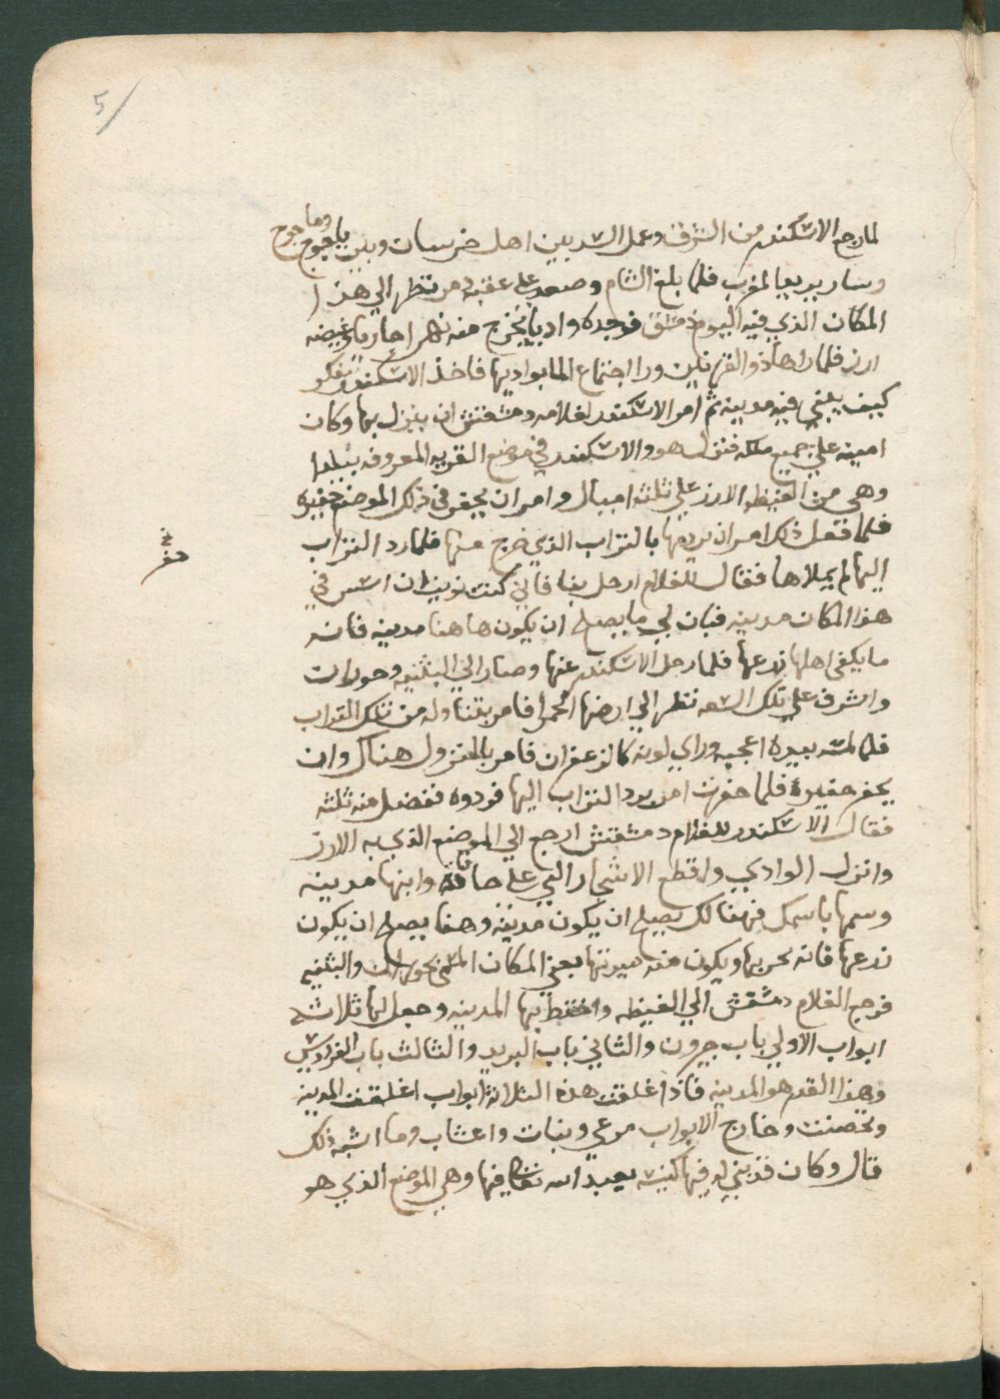 5/
لما رجع الاسكندر من الشرق وعمل السد بين اهل خرسان وبين ياجوج وماجوج
وسار يريد المغرب فلما بلغ الشام وصعد على عقبة دمر نظر الي هذا
المكان الذي فيه اليوم دمشق فوجده واديا يخرج منه نهرا جاريا وغيضه
ارز فلما راها ذو القرنين وراا اجتماع الما بواديها فاخذ الاسكندر يتفكر
كيف يبني فيه مدينه ثم امر الاسكندر لغلامه دمشقش ان ينزل بها وكان
امينه علي جميع ملكه فنزل هو والاسكندر في موضع القريه المعروفه بيلدا
وهي من الغيظه الارز علي ثلثه اميال وامر ان يحفر في ذلك الموضع حفيره
فلما فعل ذلك امر ان يردمها بالتراب الذي خرج منها فلما رد التراب
اليها لم يملاها فقال للغلام ارحل بنا فاني كنت نويت ان اسس في
هذا المكان مدينه فبان لي ما يصلح ان يكون هاهنا مدينه فانه
ما يكفي اهلها زرعها فلما رحل الاسكندر عنها وصار الي البثنيه وحوران
واشرف علي تلك السعه نظر الي ارضها الحمرا فامر بتناوله من تلك التراب
فلما لمسه بيده اعجبه وراي لونه كالزعفران فامر بالنزول هناك وان
يحفر حفيره فلما حفرت امر برد التراب اليها فردوه ففضل منه ثلثه
فقال الاسكندر للغلام دمشقش ارجع الي الموضع الذي به الارز
وانزل الوادي واقطع الاشجار التي على حافته وابنها مدينه
وسمها باسمك فهنالك يصلح ان يكون مدينه وهنا يصلح ان يكون
زرعها فانه بحريها ويكون منه ميرتها يعني المكان حوران والبثنيه
فرجع الغلام دمشقش الي الغيظه واختط بها المدينه وجعل لها ثلاثه
ابواب الاولي باب جيرون والثاني باب البريد والثالث باب الفراديس
وهذا القدر هو المدينه فاذا اغلقت هذه الثلاثة ابواب اغلقت المدينه
وتحصنت وخارج الابواب مرعي ونبات واعشاب وما اشبه ذلك
قال وكان قد بني له فيها كنيسه يعبد الله تعالى فيها وهي الموضع الذي هو